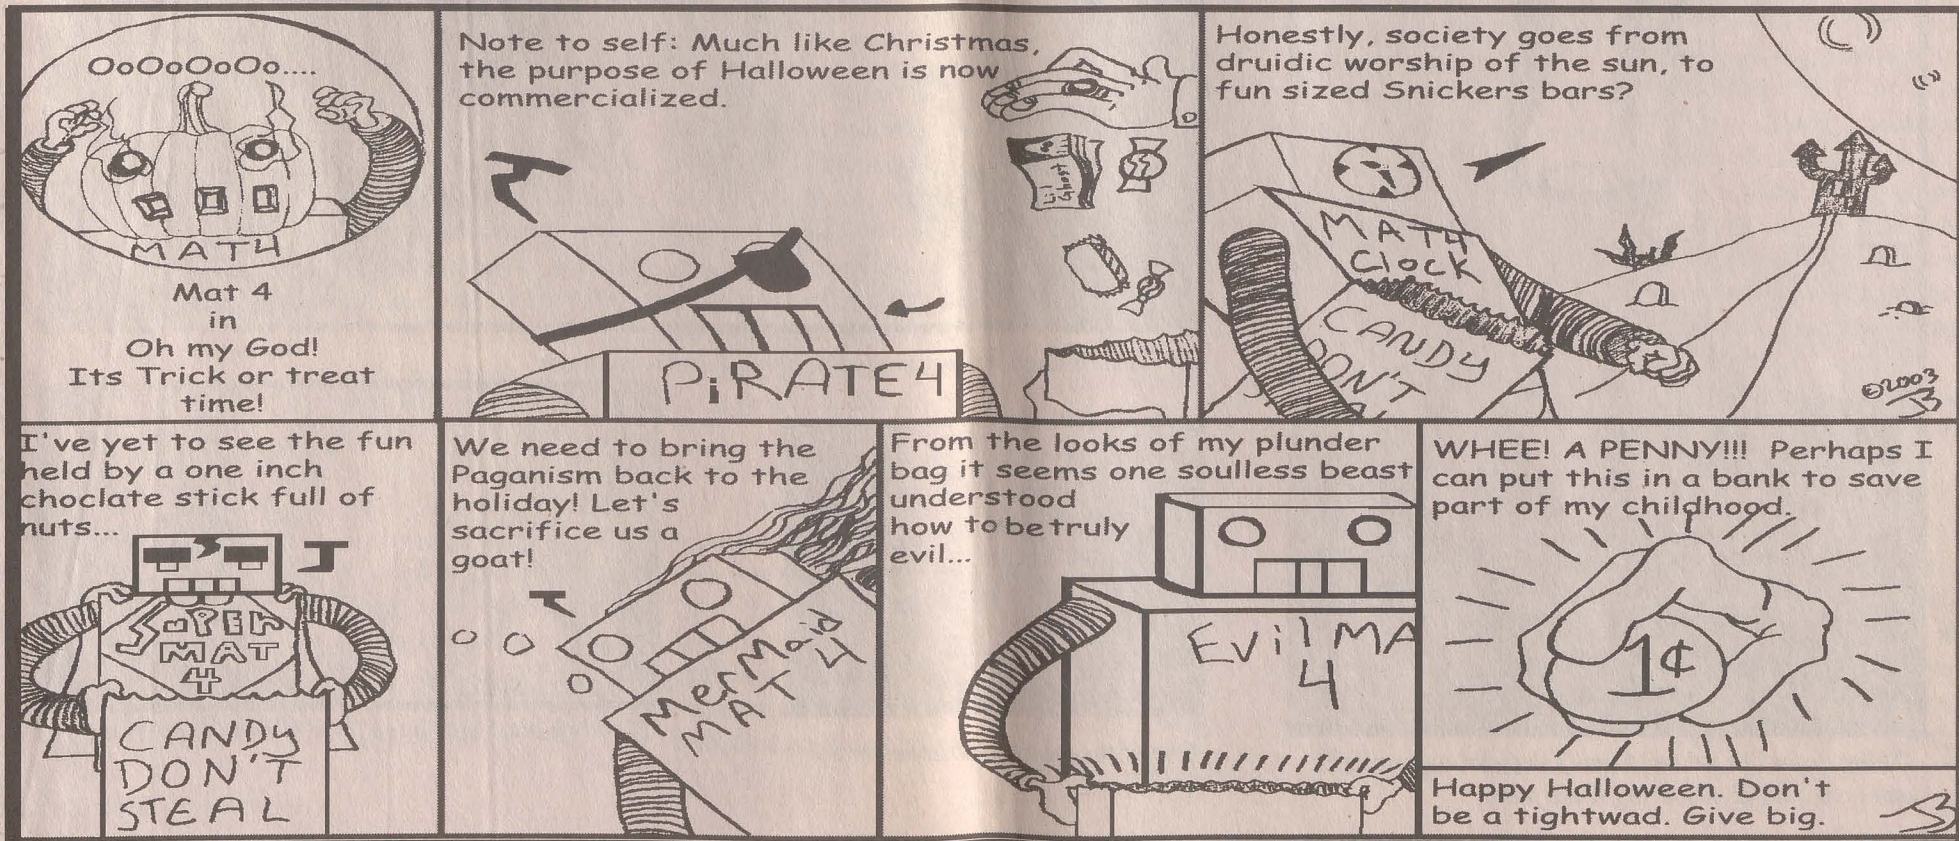 OoOoOoOo....
MAT4
Mat 4
in
Oh my God!
Its Trick or treat
time!
Note to self: Much like Christmas,
the purpose of Halloween is now
commercialized.
Lil
Ghost
PiRATE4
Honestly, society goes from
druidic worship of the sun, to
fun sized Snickers bars?
MAT4
Clock
CANDY
DON'T
©2003
JB
I've yet to see the fun
held by a one inch
choclate stick full of
nuts...
SuPER
MAT
4
CANDY
DON'T
STEAL
We need to bring the
Paganism back to the
holiday! Let's
sacrifice us a
goat!
MerMaid
MAT 4
From the looks of my plunder
bag it seems one soulless beast
understood
how to be truly
evil...
Evil MA
4
WHEE! A PENNY!!! Perhaps I
can put this in a bank to save
part of my childhood.
1¢
Happy Halloween. Don't
be a tightwad. Give big.
JB